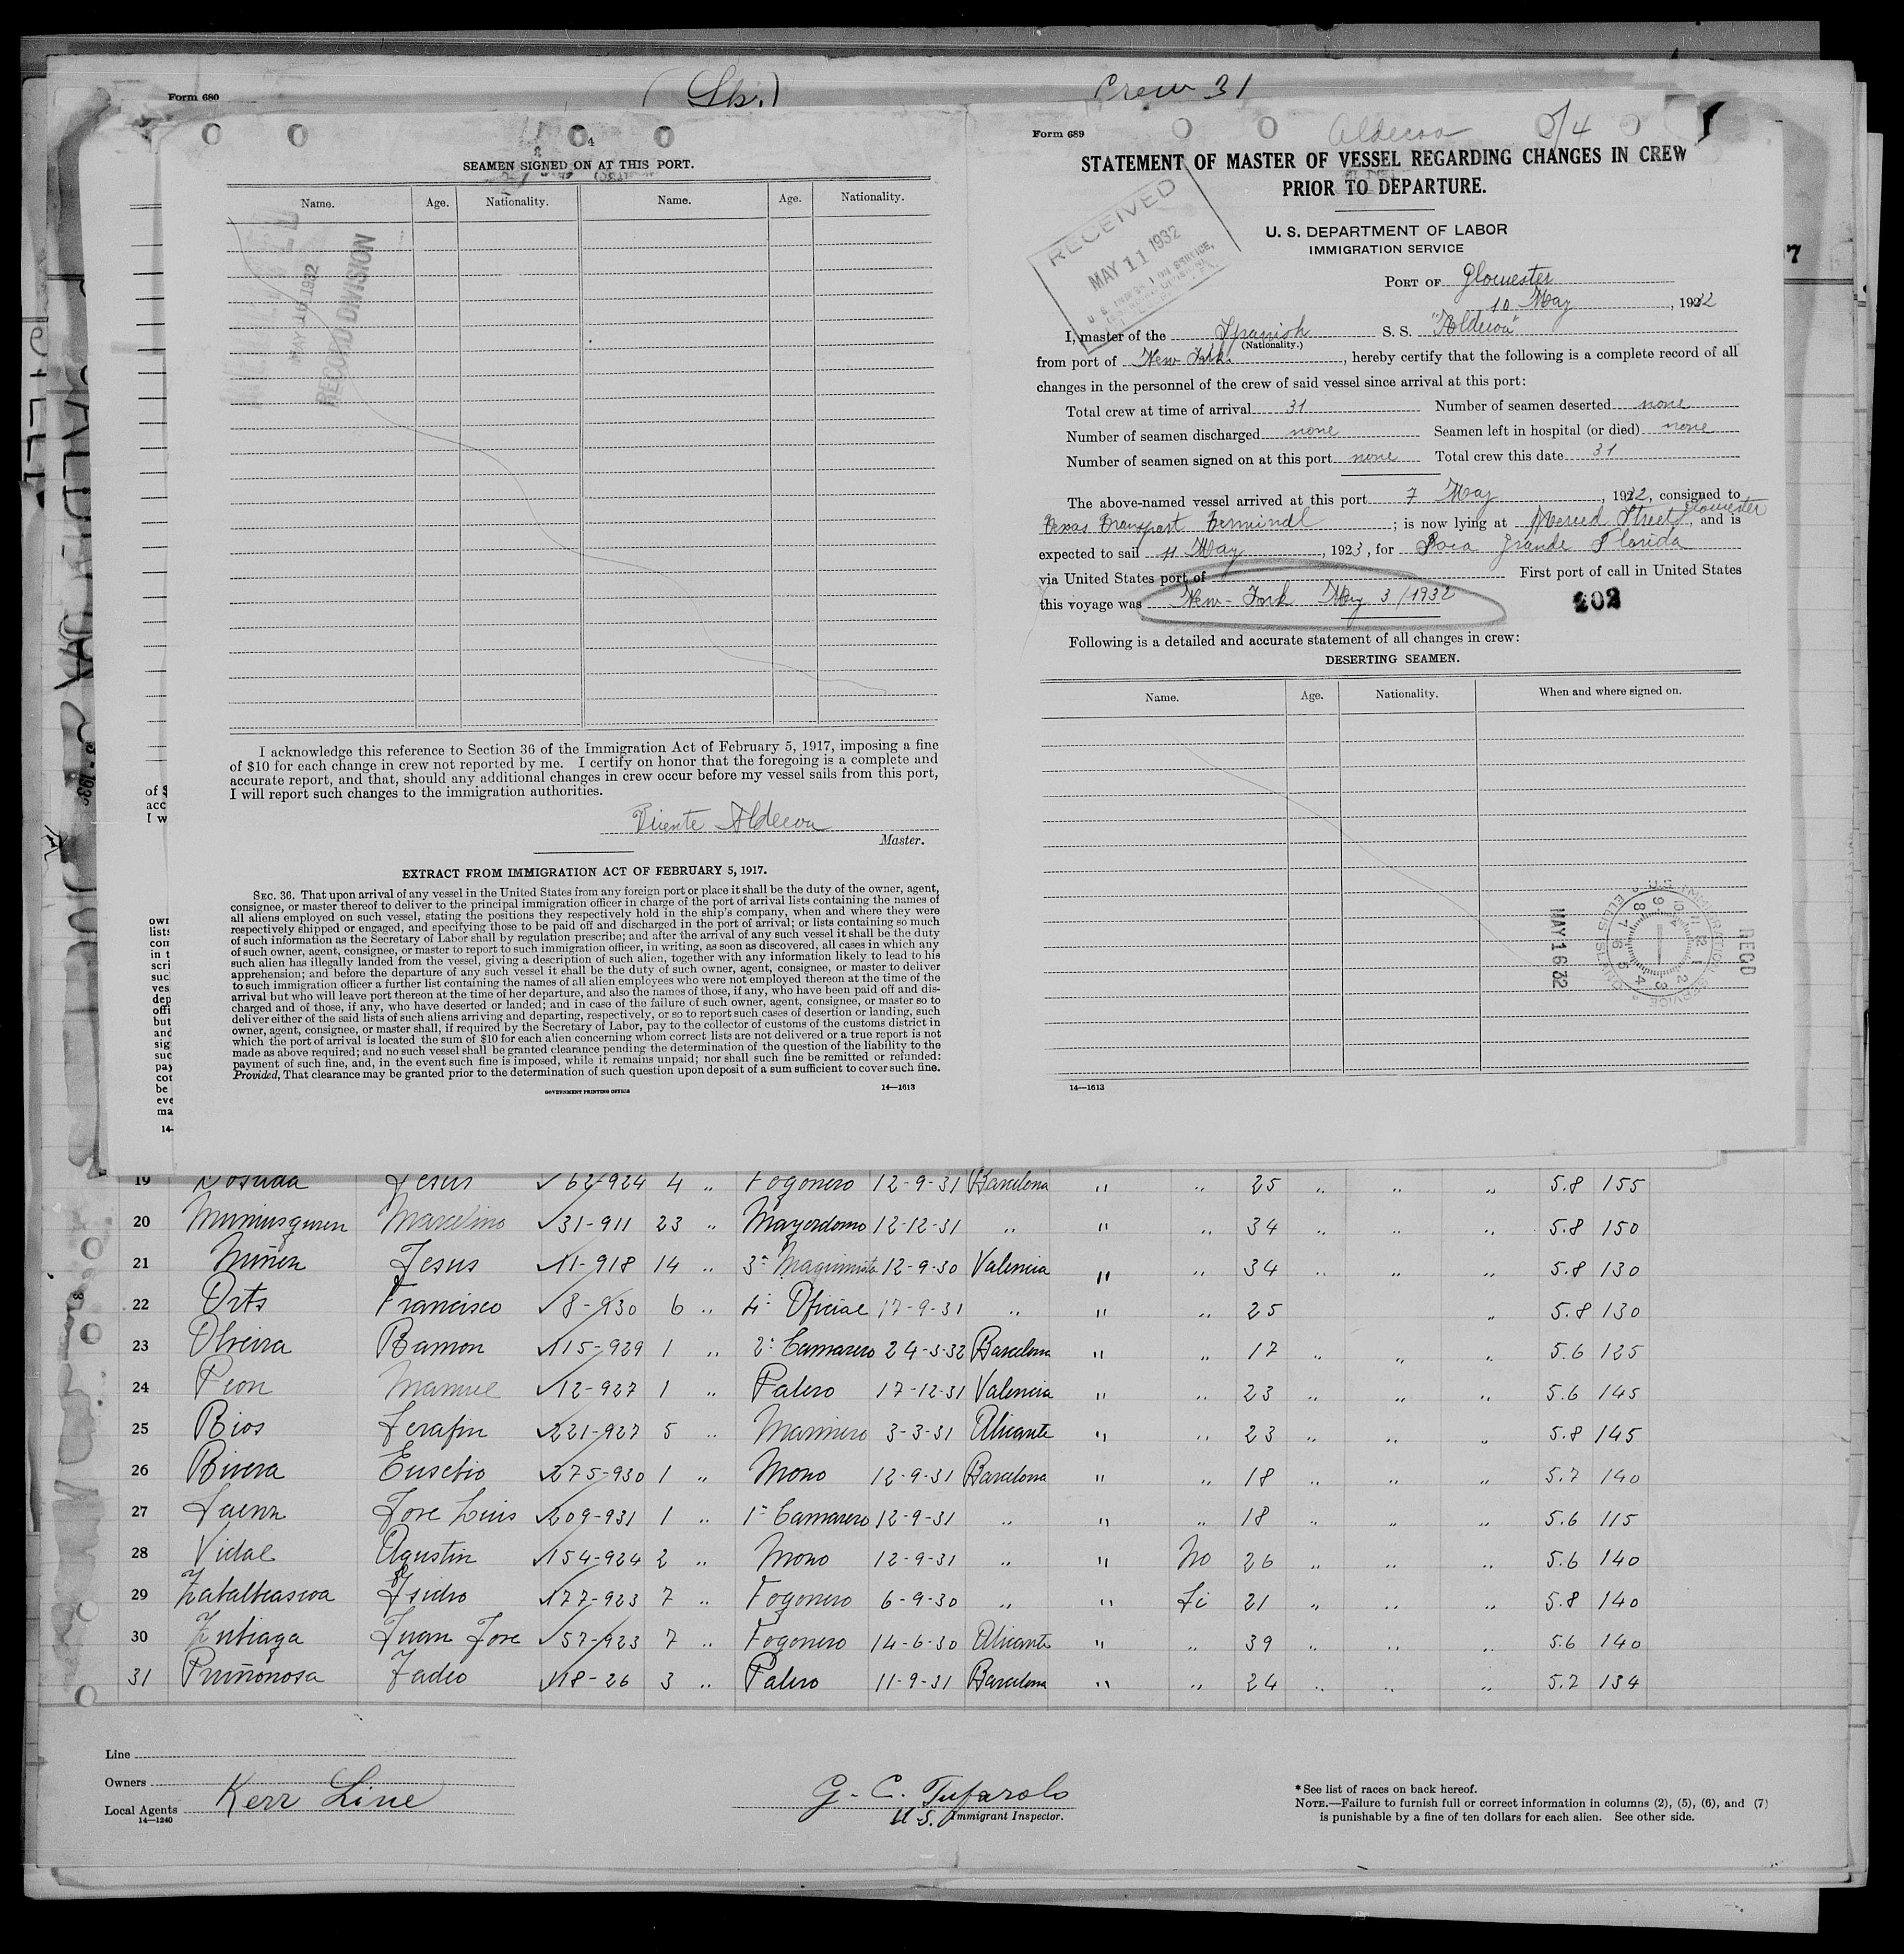 Form 680
(Sp.)
Crew 31
4
SEAMEN SIGNED ON AT THIS PORT.
Name. Age. Nationality. Name. Age. Nationality.
MAY 16 1932
RECORD DIVISION
I acknowledge this reference to Section 36 of the Immigration Act of February 5, 1917, imposing a fine
of $10 for each change in crew not reported by me. I certify on honor that the foregoing is a complete and
accurate report, and that, should any additional changes in crew occur before my vessel sails from this port,
I will report such changes to the immigration authorities.
Aldecoa
Master.
EXTRACT FROM IMMIGRATION ACT OF FEBRUARY 5, 1917.
SEC. 36. That upon arrival of any vessel in the United States from any foreign port or place it shall be the duty of the owner, agent,
consignee, or master thereof to deliver to the principal immigration officer in charge of the port of arrival lists containing the names of
all aliens employed on such vessel, stating the positions they respectively hold in the ship's company, when and where they were
respectively shipped or engaged, and specifying those to be paid off and discharged in the port of arrival; or lists containing so much
of such information as the Secretary of Labor shall by regulation prescribe; and after the arrival of any such vessel it shall be the duty
of such owner, agent, consignee, or master to report to such immigration officer, in writing, as soon as discovered, all cases in which any
such alien has illegally landed from the vessel, giving a description of such alien, together with any information likely to lead to his
apprehension; and before the departure of any such vessel it shall be the duty of such owner, agent, consignee, or master to deliver
to such immigration officer a further list containing the names of all alien employees who were not employed thereon at the time of the
arrival but who will leave port thereon at the time of her departure, and also the names of those, if any, who have been paid off and dis-
charged and of those, if any, who have deserted or landed; and in case of the failure of such owner, agent, consignee, or master so to
deliver either of the said lists of such aliens arriving and departing, respectively, or so to report such cases of desertion or landing, such
owner, agent, consignee, or master shall, if required by the Secretary of Labor, pay to the collector of customs of the customs district in
which the port of arrival is located the sum of $10 for each alien concerning whom correct lists are not delivered or a true report is not
made as above required; and no such vessel shall be granted clearance pending the determination of the question of the liability to the
payment of such fine, and, in the event such fine is imposed, while it remains unpaid; nor shall such fine be remitted or refunded:
Provided, That clearance may be granted prior to the determination of such question upon deposit of a sum sufficient to cover such fine.
GOVERNMENT PRINTING OFFICE 14—1613
Form 689
Aldecoa 5/4
STATEMENT OF MASTER OF VESSEL REGARDING CHANGES IN CREW
PRIOR TO DEPARTURE.
RECEIVED
MAY 11 1932
U. S. DEPARTMENT OF LABOR
IMMIGRATION SERVICE
PORT OF Gloucester
10 May, 1932
I, master of the Spanish S. S. "Aldecoa"
(Nationality.)
from port of New York, hereby certify that the following is a complete record of all
changes in the personnel of the crew of said vessel since arrival at this port:
Total crew at time of arrival 31 Number of seamen deserted none
Number of seamen discharged none Seamen left in hospital (or died) none
Number of seamen signed on at this port none Total crew this date 31
The above-named vessel arrived at this port 7 May, 1932, consigned to
Texas Transport Termindl; is now lying at Street Gloucester, and is
expected to sail 11 May, 1923, for Boca Grande Florida
via United States port of First port of call in United States
this voyage was New-York May 3/1932
202
Following is a detailed and accurate statement of all changes in crew:
DESERTING SEAMEN.
Name. Age. Nationality. When and where signed on.
MAY 16 32
U.S. IMMIGRATION SERVICE ELLIS ISLAND
REC'D
14—1613
19 Jesus 62-924 4 " Fogonero 12-9-31 Barcelona " " 25 " " " 5.8 155
20 Marcelino 31-911 23 " Mayordomo 12-12-31 " " " 34 " " " 5.8 150
21 Muñen Jesus 11-918 14 " 3º Maquinista 12-9-30 Valencia " " 34 " " " 5.8 130
22 Orts Francisco 8-930 6 " 4º Oficial 17-9-31 " " " 25 " 5.8 130
23 Olveira Ramon 115-929 1 " 2º Camarero 24-3-32 Barcelona " " 17 " " " 5.6 125
24 Peon Manuel 12-927 1 " Palero 17-12-31 Valencia " " 23 " " " 5.6 145
25 Rios Serafin 221-927 5 " Marinero 3-3-31 Alicante " " 23 " " " 5.8 145
26 Rivera Eusebio 275-930 1 " Mozo 12-9-31 Barcelona " " 18 " " " 5.7 140
27 Saenz Jose Luis 209-931 1 " 1º Camarero 12-9-31 " " " 18 " " " 5.6 115
28 Vidal Agustin 154-924 2 " Mozo 12-9-31 " " No 26 " " " 5.6 140
29 Zabalbeascoa Isidro 177-923 7 " Fogonero 6-9-30 " " Si 21 " " " 5.8 140
30 Zubiaga Juan Jose 57-923 7 " Fogonero 14-6-30 Alicante " " 39 " " " 5.6 140
31 Tadeo 118-26 3 " Palero 11-9-31 Barcelona " " 24 " " " 5.7 134
Line
Owners
Local Agents Kerr Line
14—1240
G. C. Tufarolo
U.S. Immigrant Inspector.
* See list of races on back hereof.
NOTE.—Failure to furnish full or correct information in columns (2), (5), (6), and (7)
is punishable by a fine of ten dollars for each alien. See other side.